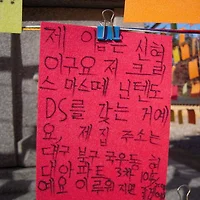 제 이름은 신혁
이구요 저 크리
스마스때 닌텐도
DS를 갖는 거예
요, 제 집 주소는
대구 북구 국우동 현
대아파트
예요 이루워지면